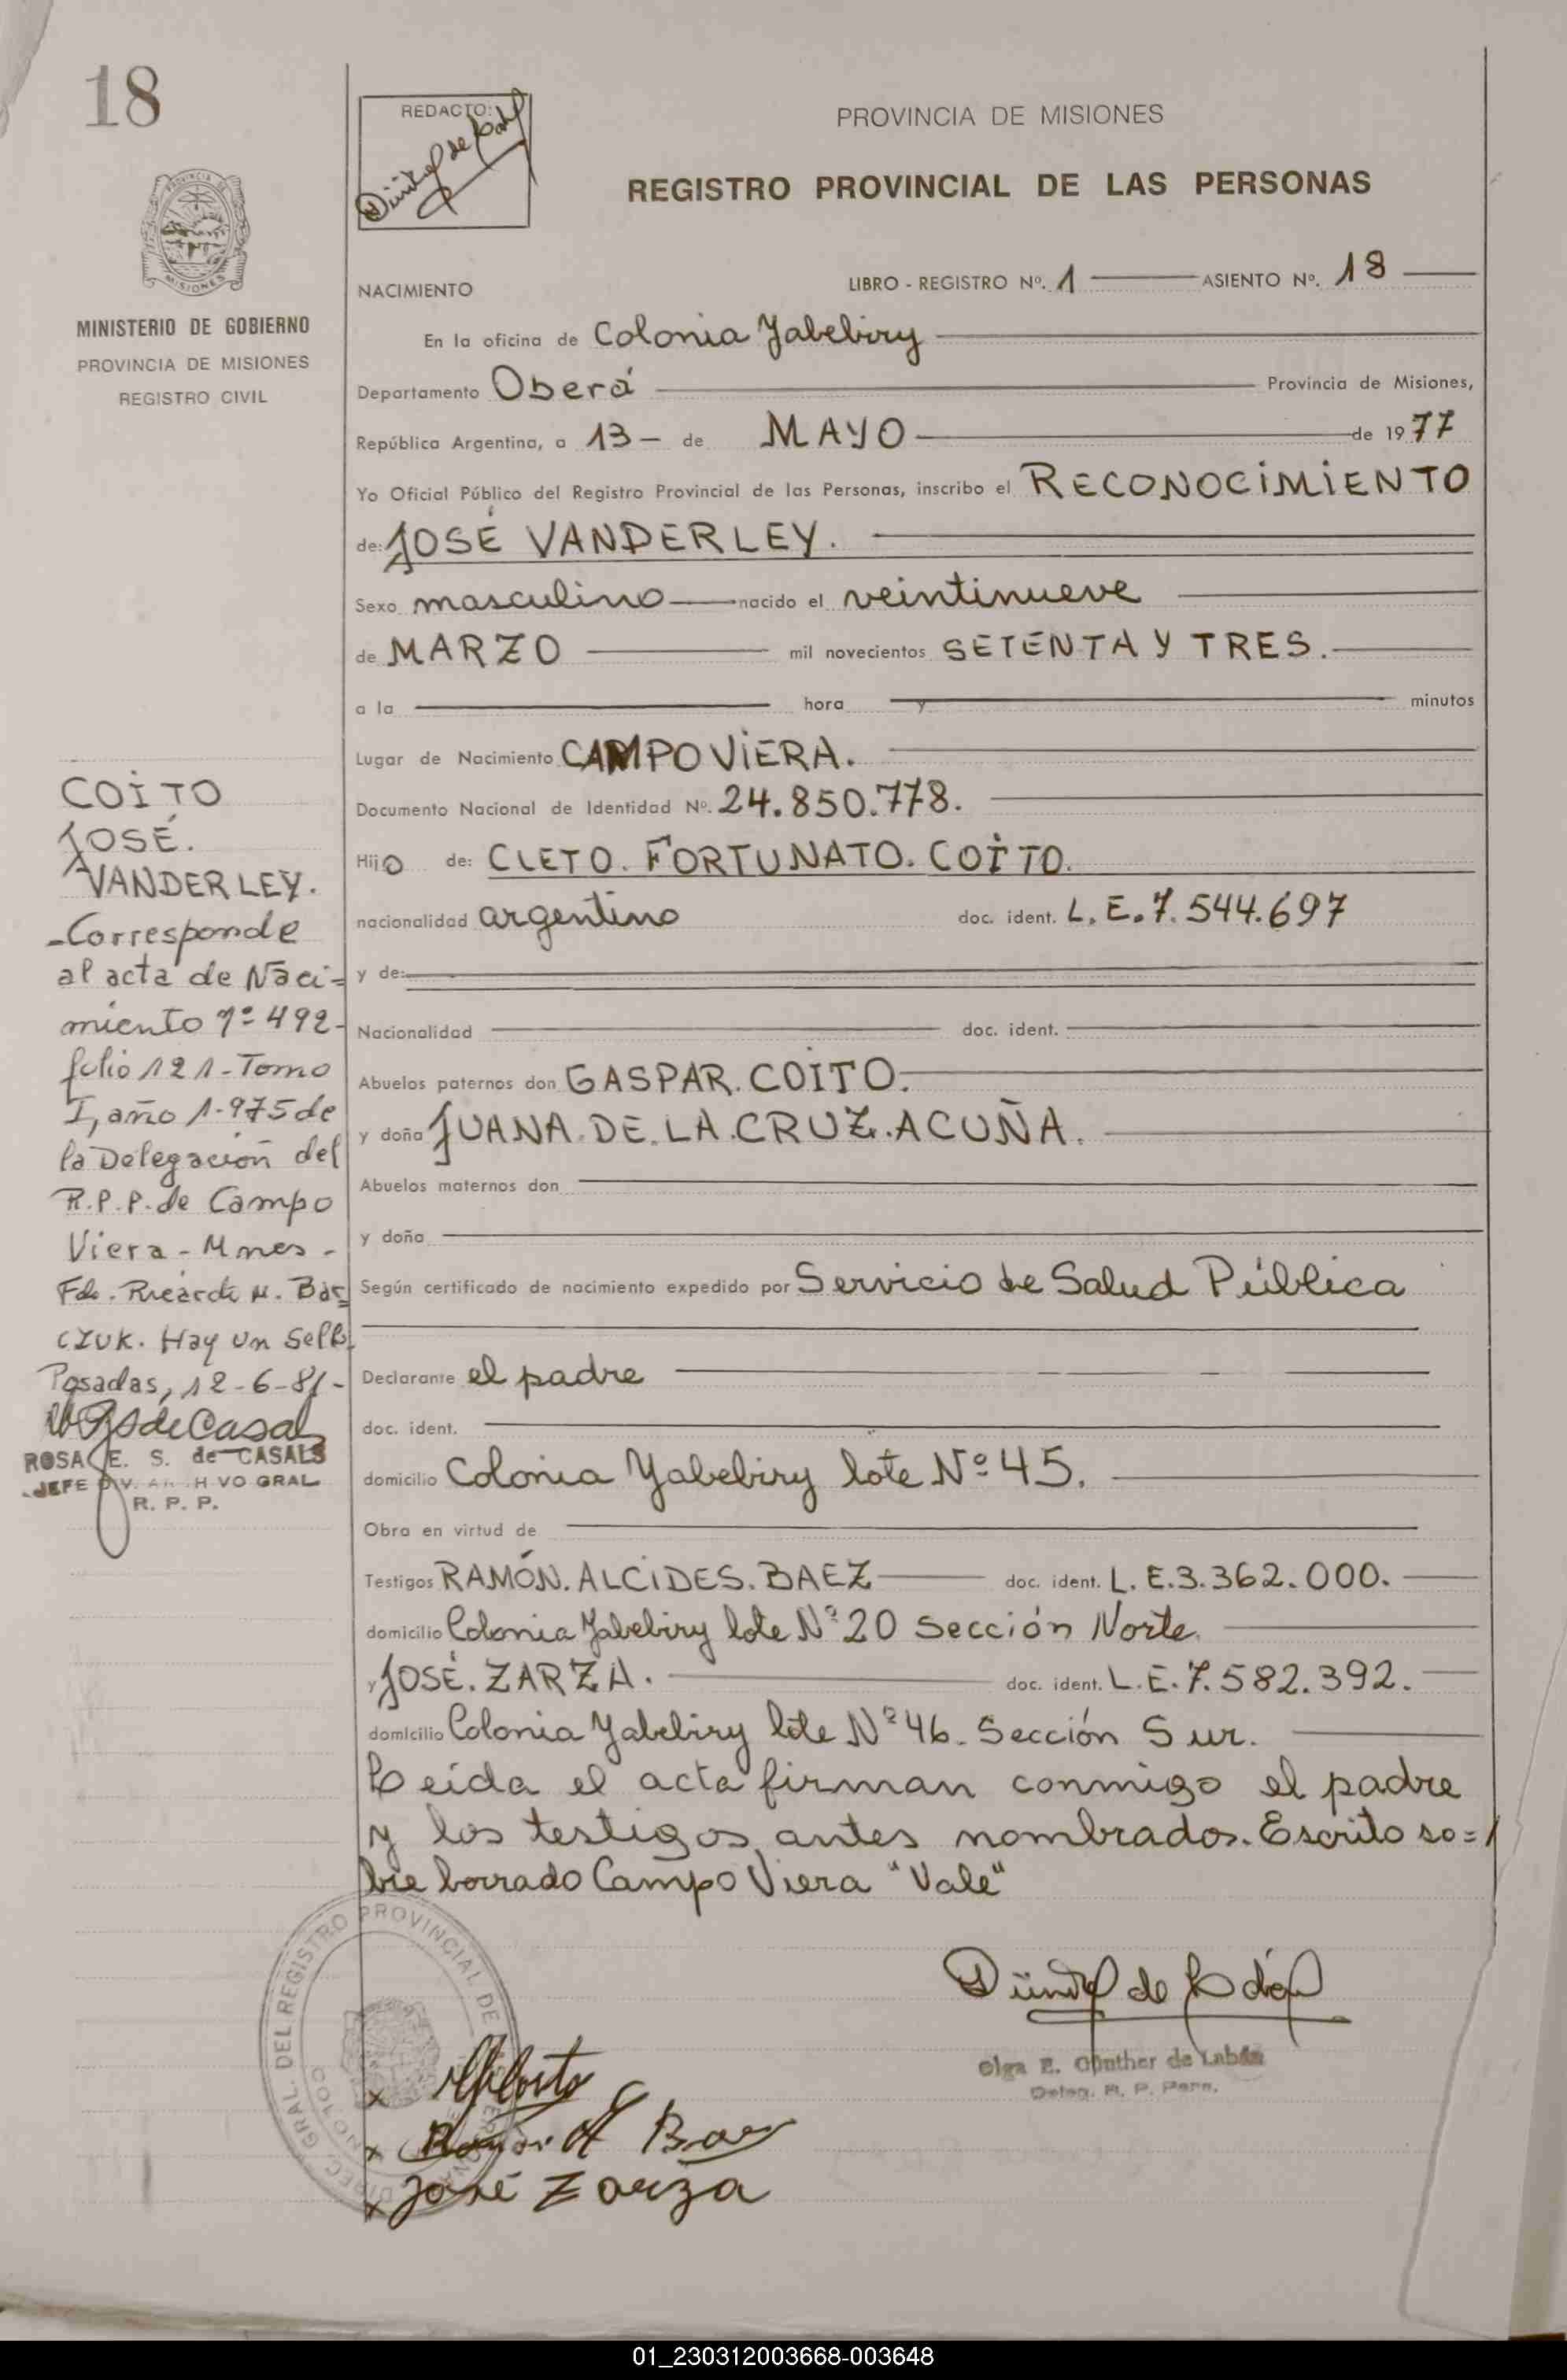 18
MINISTERIO DE GOBIERNO
PROVINCIA DE MISIONES
REGISTRO CIVIL
COITO
JOSÉ.
VANDERLEY.
-Corresponde
al acta de Naci=
miento nº 492-
folio 121-Tomo
I, año 1.975 de
la Delegación del
R.P.P. de Campo
Viera - Mnes -
Fdo. Ricardo M. Bas=
czuk. Hay un Sello.
Posadas, 12-6-81-
ROSA E. S. de CASALS
JEFE DIV. ARCHIVO GRAL
R. P. P.
REDACTO:
PROVINCIA DE MISIONES
REGISTRO PROVINCIAL DE LAS PERSONAS
NACIMIENTO LIBRO - REGISTRO Nº. 1 ASIENTO Nº. 18
En la oficina de Colonia Yabebiry
Departamento Oberá Provincia de Misiones,
República Argentina, a 13- de MAYO de 1977
Yo Oficial Público del Registro Provincial de las Personas, inscribo el RECONOCIMIENTO
de: JOSÉ VANDERLEY.
Sexo masculino nacido el veintinueve
de MARZO mil novecientos SETENTA Y TRES.
a la hora y minutos
Lugar de Nacimiento CAMPO VIERA.
Documento Nacional de Identidad Nº. 24.850.778.
Hijo de: CLETO. FORTUNATO. COITO.
nacionalidad argentino doc. ident. L.E.7.544.697
y de:
Nacionalidad doc. ident.
Abuelos paternos don GASPAR. COITO.
y doña JUANA.DE.LA.CRUZ.ACUÑA.
Abuelos maternos don
y doña
Según certificado de nacimiento expedido por Servicio de Salud Pública
Declarante el padre
doc. ident.
domicilio Colonia Yabebiry lote Nº 45.
Obra en virtud de
Testigos RAMÓN.ALCIDES.BAEZ doc. ident. L.E.3.362.000.
domicilio Colonia Yabebiry lote Nº 20 Sección Norte.
y JOSÉ.ZARZA. doc. ident. L.E.7.582.392.
domicilio Colonia Yabebiry lote Nº 46. Sección Sur.
Leída el acta firman conmigo el padre
y los testigos antes nombrados. Escrito so=
bre borrado Campo Viera "Vale"
DIREC. GRAL DEL REGISTRO PROVINCIAL DE
Olga E. Günther de Labán
Deleg. R. P. Pers.
x
x Ramón A Baez
x José Zarza
01_230312003668-003648